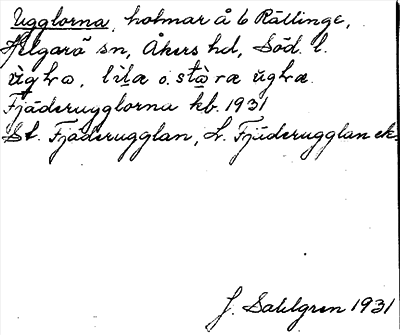 Ugglorna, holmar å 6 Rällinge,
Helgarö sn, Åkers hd, Söd. l.
Fjäderugglorna kb. 1931
St. Fjäderugglan, L. Fjäderugglan ek.
J. Sahlgren 1931